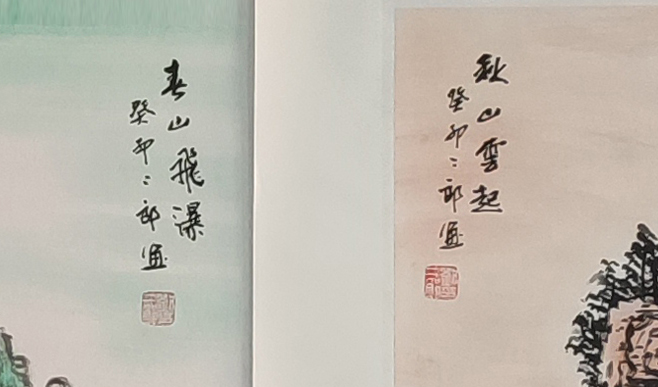 春山飛瀑
癸卯二郎画
秋山雲起
癸卯二郎画